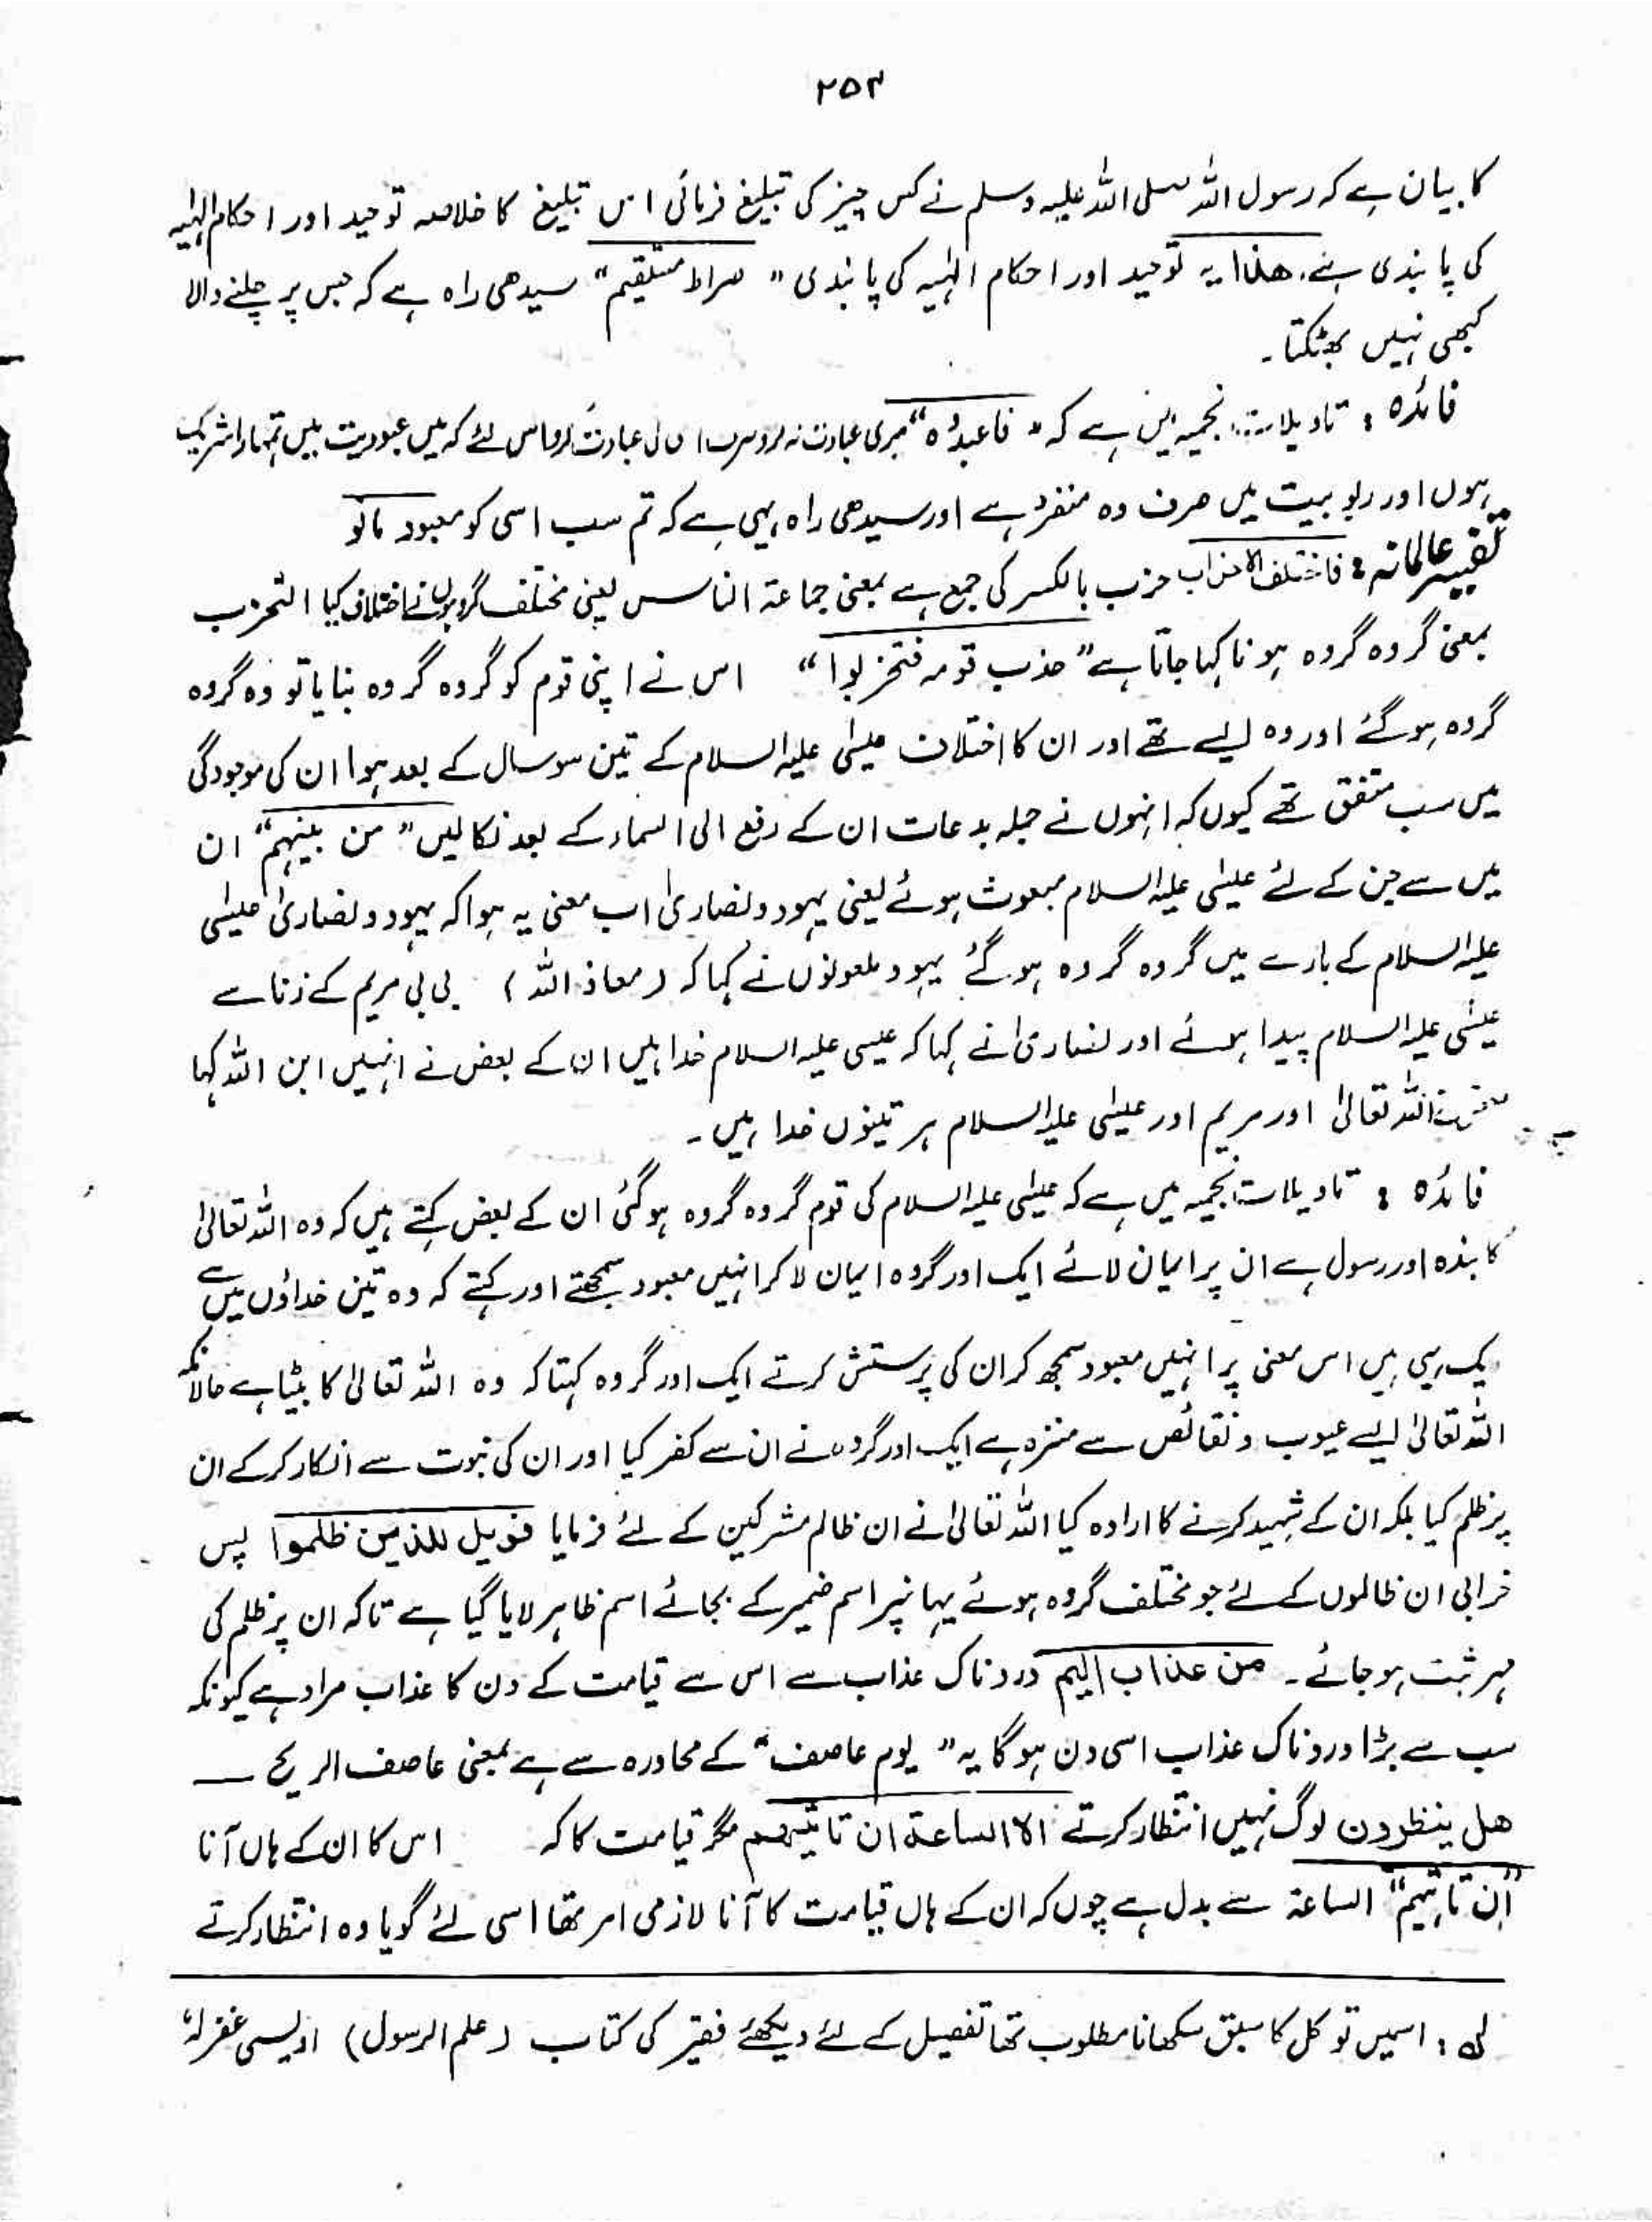 ۲۵۳
کا بیان ہے کہ رسول اللہ صلی اللہ علیہ وسلم نے کس چیز کی تبلیغ فرمائی اس تبلیغ کا خلاصہ توحید اور احکام الہٰیہ
کی پابندی ہے۔ ھذا یہ توحید اور احکام الہٰیہ کی پابندی " صراط مستقیم " سیدھی راہ ہے کہ جس پر چلنے والا
کبھی نہیں بھٹکتا ۔
فائدہ : تاویلات نجمیہ میں ہے کہ " فاعبدُہ " میری عبادت نہ کرو صرف اس کی عبادت کرو اس لئے کہ میں عبودیت میں تمہارا شریک
ہوں اور ربوبیت میں صرف وہ منفرد ہے اور سیدھی راہ یہی ہے کہ تم سب اسی کو معبود مانو
تفسیر عالمانہ : فاختلف الاحزاب حزب بالکسر کی جمع ہے بمعنی جماعۃ الناس یعنی مختلف گروہوں نے اختلاف کیا التحزب
بمعنی گروہ گروہ ہونا کہا جاتا ہے " حذب قومہ فتحزبوا " اس نے اپنی قوم کو گروہ گروہ بنایا تو وہ گروہ
گروہ ہو گئے اور وہ ایسے تھے اور ان کا اختلاف عیسٰی علیہ السلام کے تین سو سال کے بعد ہوا ان کی موجودگی
میں سب متفق تھے کیوں کہ انہوں نے جملہ بدعات ان کے رفع الی السماء کے بعد نکالیں " من بینہم " ان
میں سے جن کے لئے عیسٰی علیہ السلام مبعوث ہوئے یعنی یہود و نصاریٰ اب معنی یہ ہوا کہ یہود و نصاریٰ عیسٰی
علیہ السلام کے بارے میں گروہ گروہ ہو گئے یہود ملعونوں نے کہا کہ (معاذ اللہ) بی بی مریم کے زنا سے
عیسٰی علیہ السلام پیدا ہوئے اور نصاریٰ نے کہا کہ عیسی علیہ السلام خدا ہیں ان کے بعض نے انہیں ابن اللہ کہا
اللہ تعالیٰ اور مریم اور عیسٰی علیہ السلام ہر تینوں خدا ہیں ۔
فائدہ : تاویلات نجمیہ میں ہے کہ عیسٰی علیہ السلام کی قوم گروہ گروہ ہو گئی ان کے بعض کہتے ہیں کہ وہ اللہ تعالیٰ
کا بندہ اور رسول ہے ان پر ایمان لائے ایک اور گروہ ایمان لا کر انہیں معبود سمجھتے اور کہتے کہ وہ تین خداؤں میں سے
یک ہی ہیں اس معنی پر انہیں معبود سمجھ کر ان کی پرستش کرتے ایک اور گروہ کہتا کہ وہ اللہ تعالیٰ کا بیٹا ہے حالانکہ
اللہ تعالیٰ ایسے عیوب و نقائص سے منزہ ہے ایک اور گروہ نے ان سے کفر کیا اور ان کی نبوت سے انکار کر کے ان
پر ظلم کیا بلکہ ان کے شہید کرنے کا ارادہ کیا اللہ تعالیٰ نے ان ظالم مشرکین کے لئے فرمایا فویل للذین ظلموا پس
خرابی ان ظالموں کے لئے جو مختلف گروہ ہوئے یہا نپر اسم ضمیر کے بجائے اسم ظاہر لایا گیا ہے تاکہ ان پر ظلم کی
مہر ثبت ہو جائے ۔ من عذاب الیم دردناک عذاب سے اس سے قیامت کے دن کا عذاب مراد ہے کیونکہ
سب سے بڑا دردناک عذاب اسی دن ہو گا یہ " یوم عاصف " کے محاورہ سے ہے بمعنی عاصف الریح ــــ
ھل ینظرون لوگ نہیں انتظار کرتے الا الساعۃ ان تاتیھم مگر قیامت کا کہ اس کا ان کے ہاں آنا
" ان تاتیہم " الساعۃ سے بدل ہے چوں کہ ان کے ہاں قیامت کا آنا لازمی امر تھا اسی لئے گویا وہ انتظار کرتے
لہ : اسمیں توکل کا سبق سکھانا مطلوب تھا تفصیل کے لئے دیکھئے فقیر کی کتاب (علم الرسول) اویسی غفرلہٗ